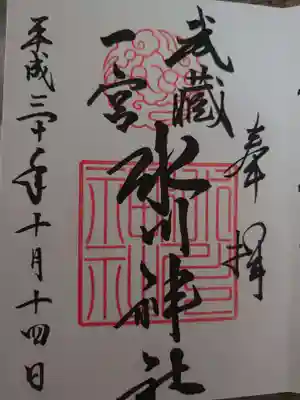 奉拝
武蔵
一宮
氷川神社
平成三十年十月十四日